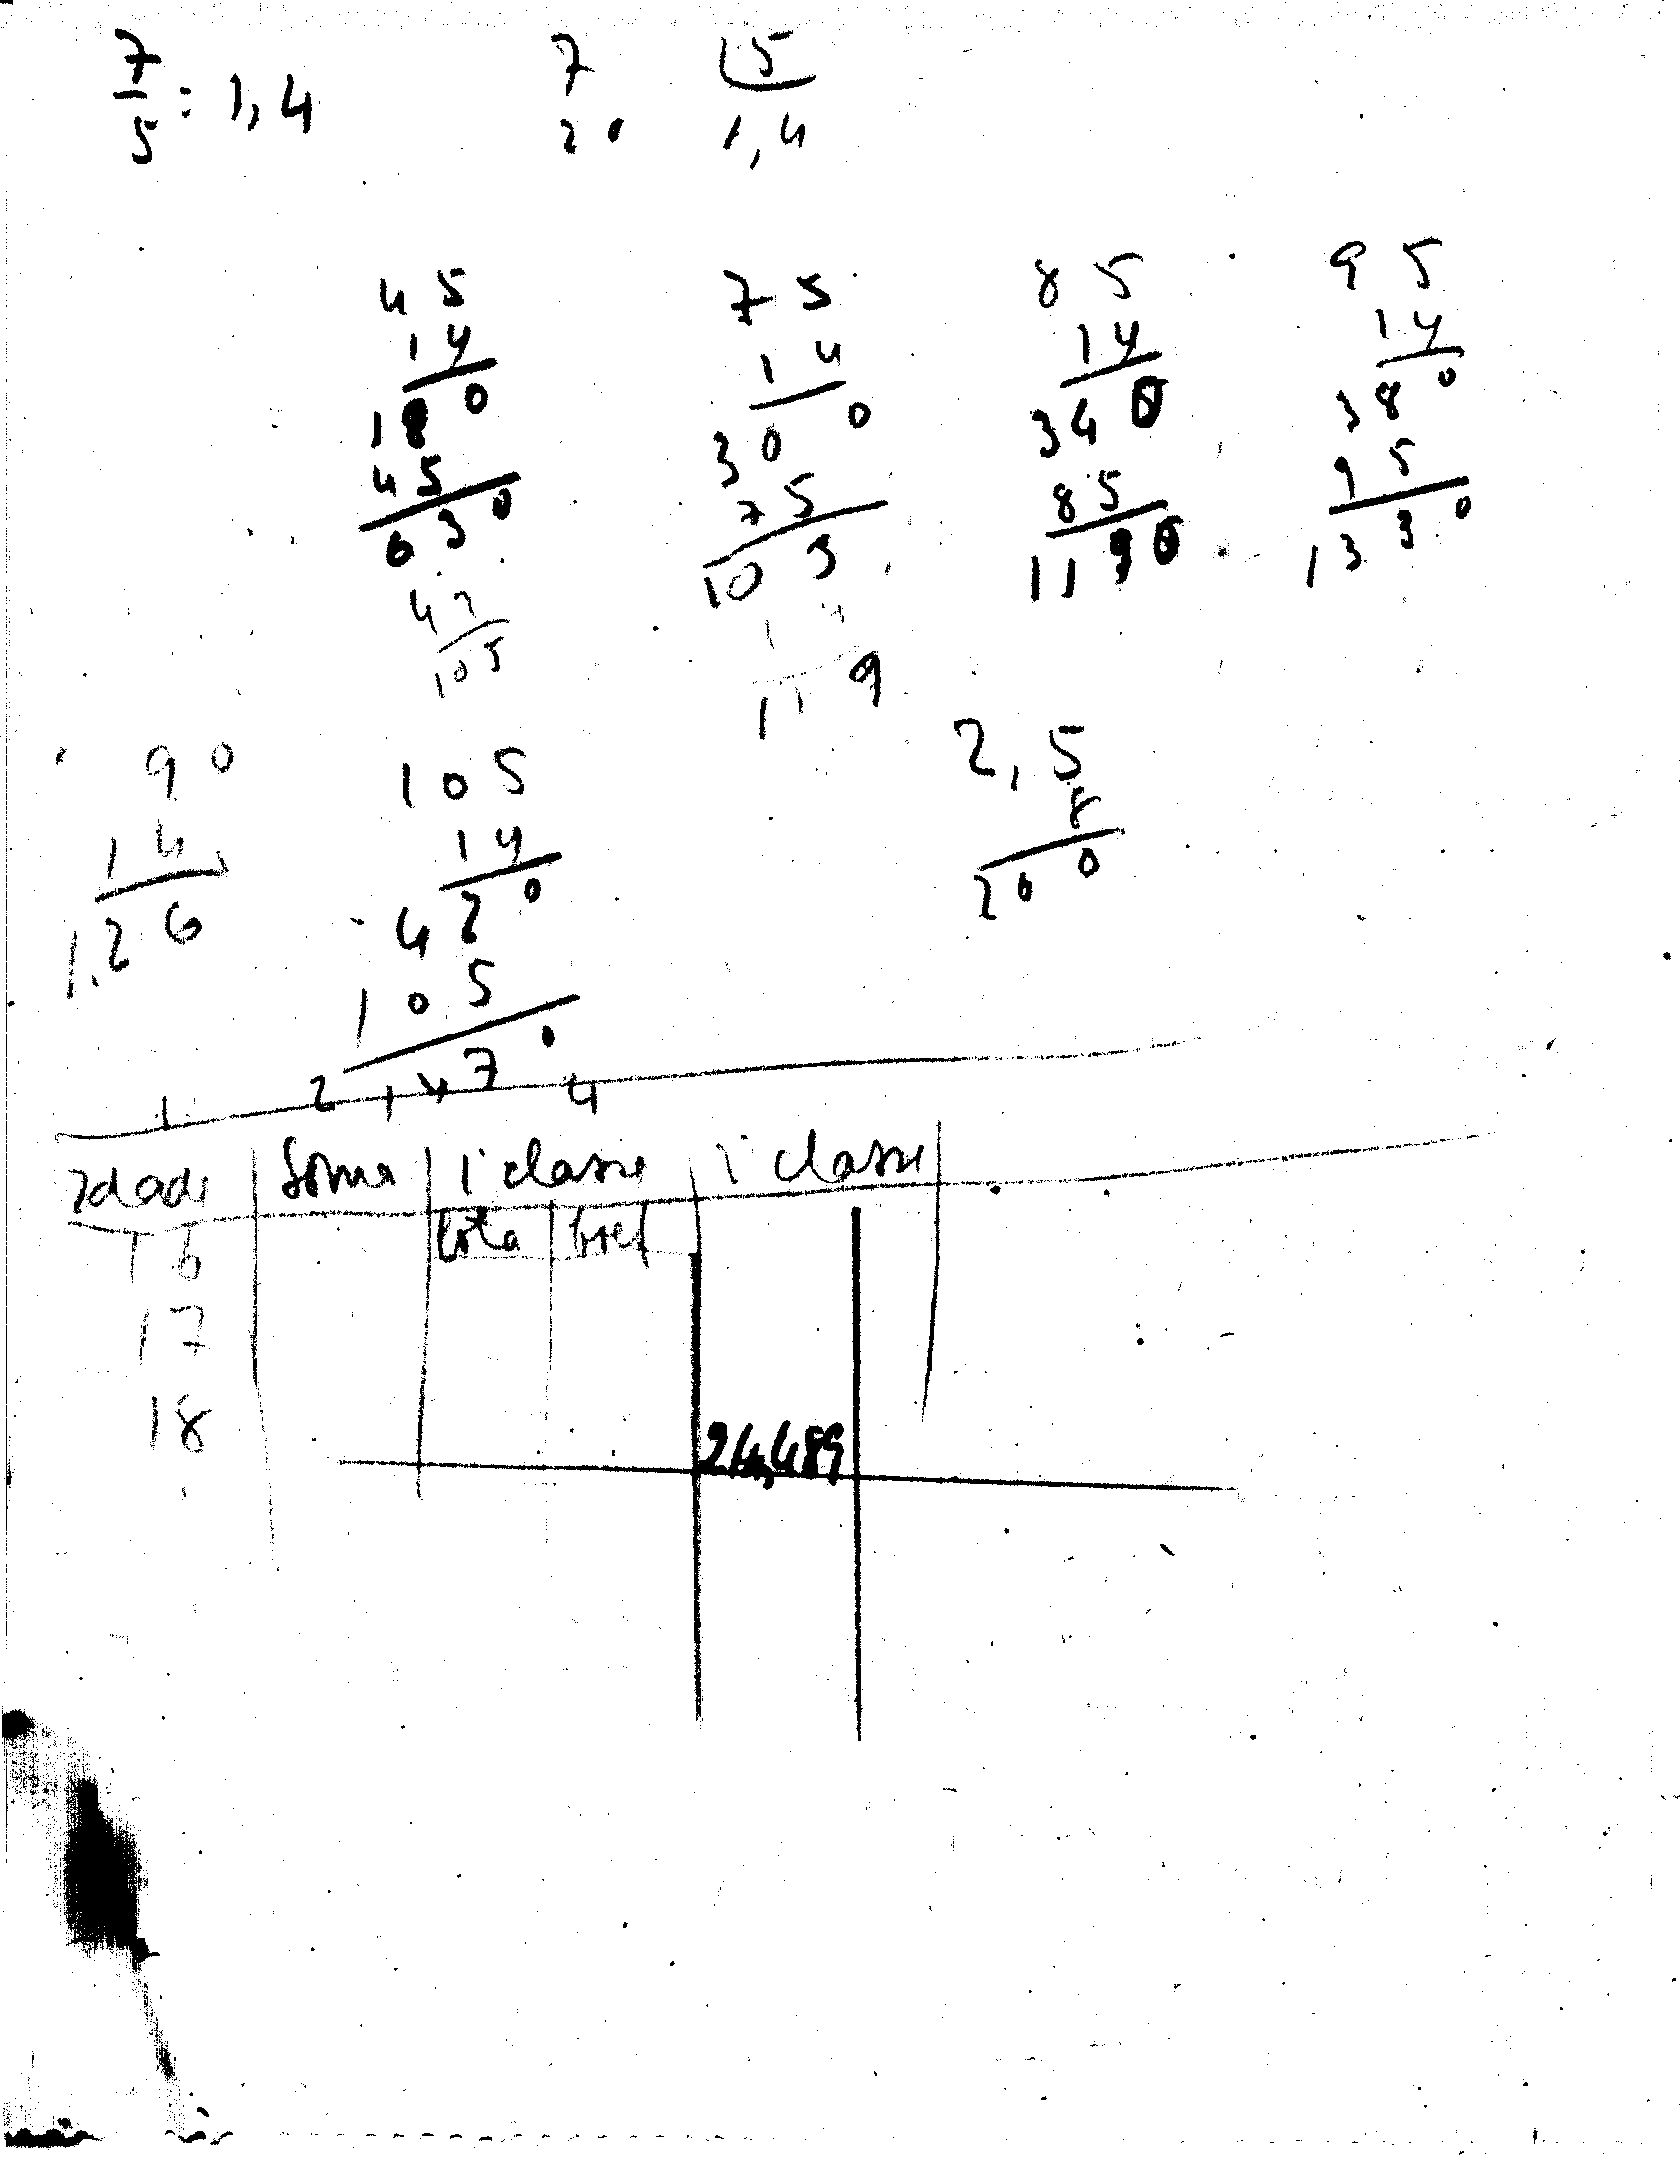 7/5 : 1,4
7 5
20 1,4
45 75 85 95
14 14 14 14
180 300 340 380
45 75 85 95
630 105 1190 1330
42
105
119
90 105 2,5
14 14 8
126 420 200
105
1470
1 2 4
Idade Soma 1ª classe 1ª classe
16
17
18
24,489